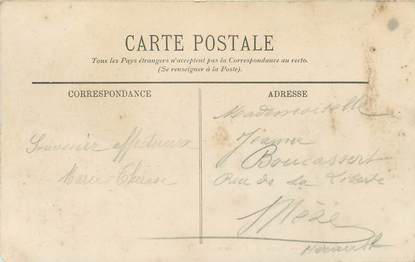 CARTE POSTALE
Tous les Pays étrangers n'acceptent pas la Correspondance au recto.
(Se renseigner à la Poste).
CORRESPONDANCE
ADRESSE
Souvenir affectueux
Marie Thérèse
Mademoiselle
Boucassert
Rue de La Liberté
Mèze
Hérault